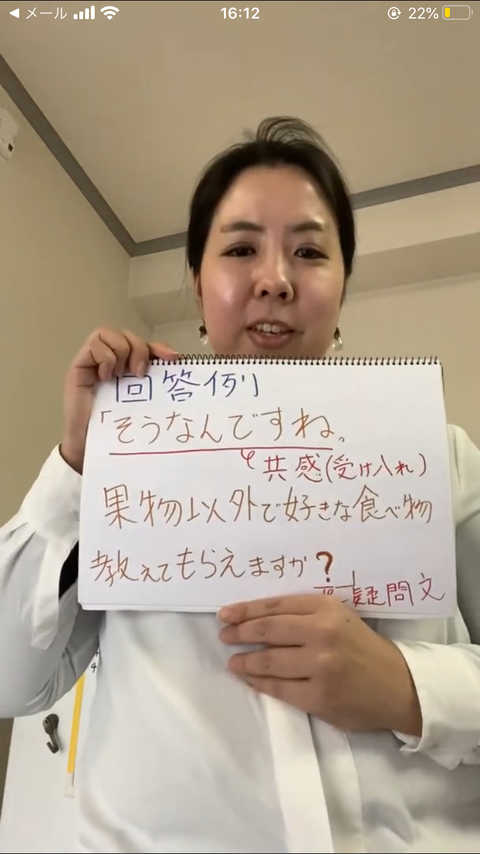 メール 16:12 22%
回答例
「そうなんですね。
共感(受け入れ)
果物以外で好きな食べ物
教えてもらえますか?
疑問文